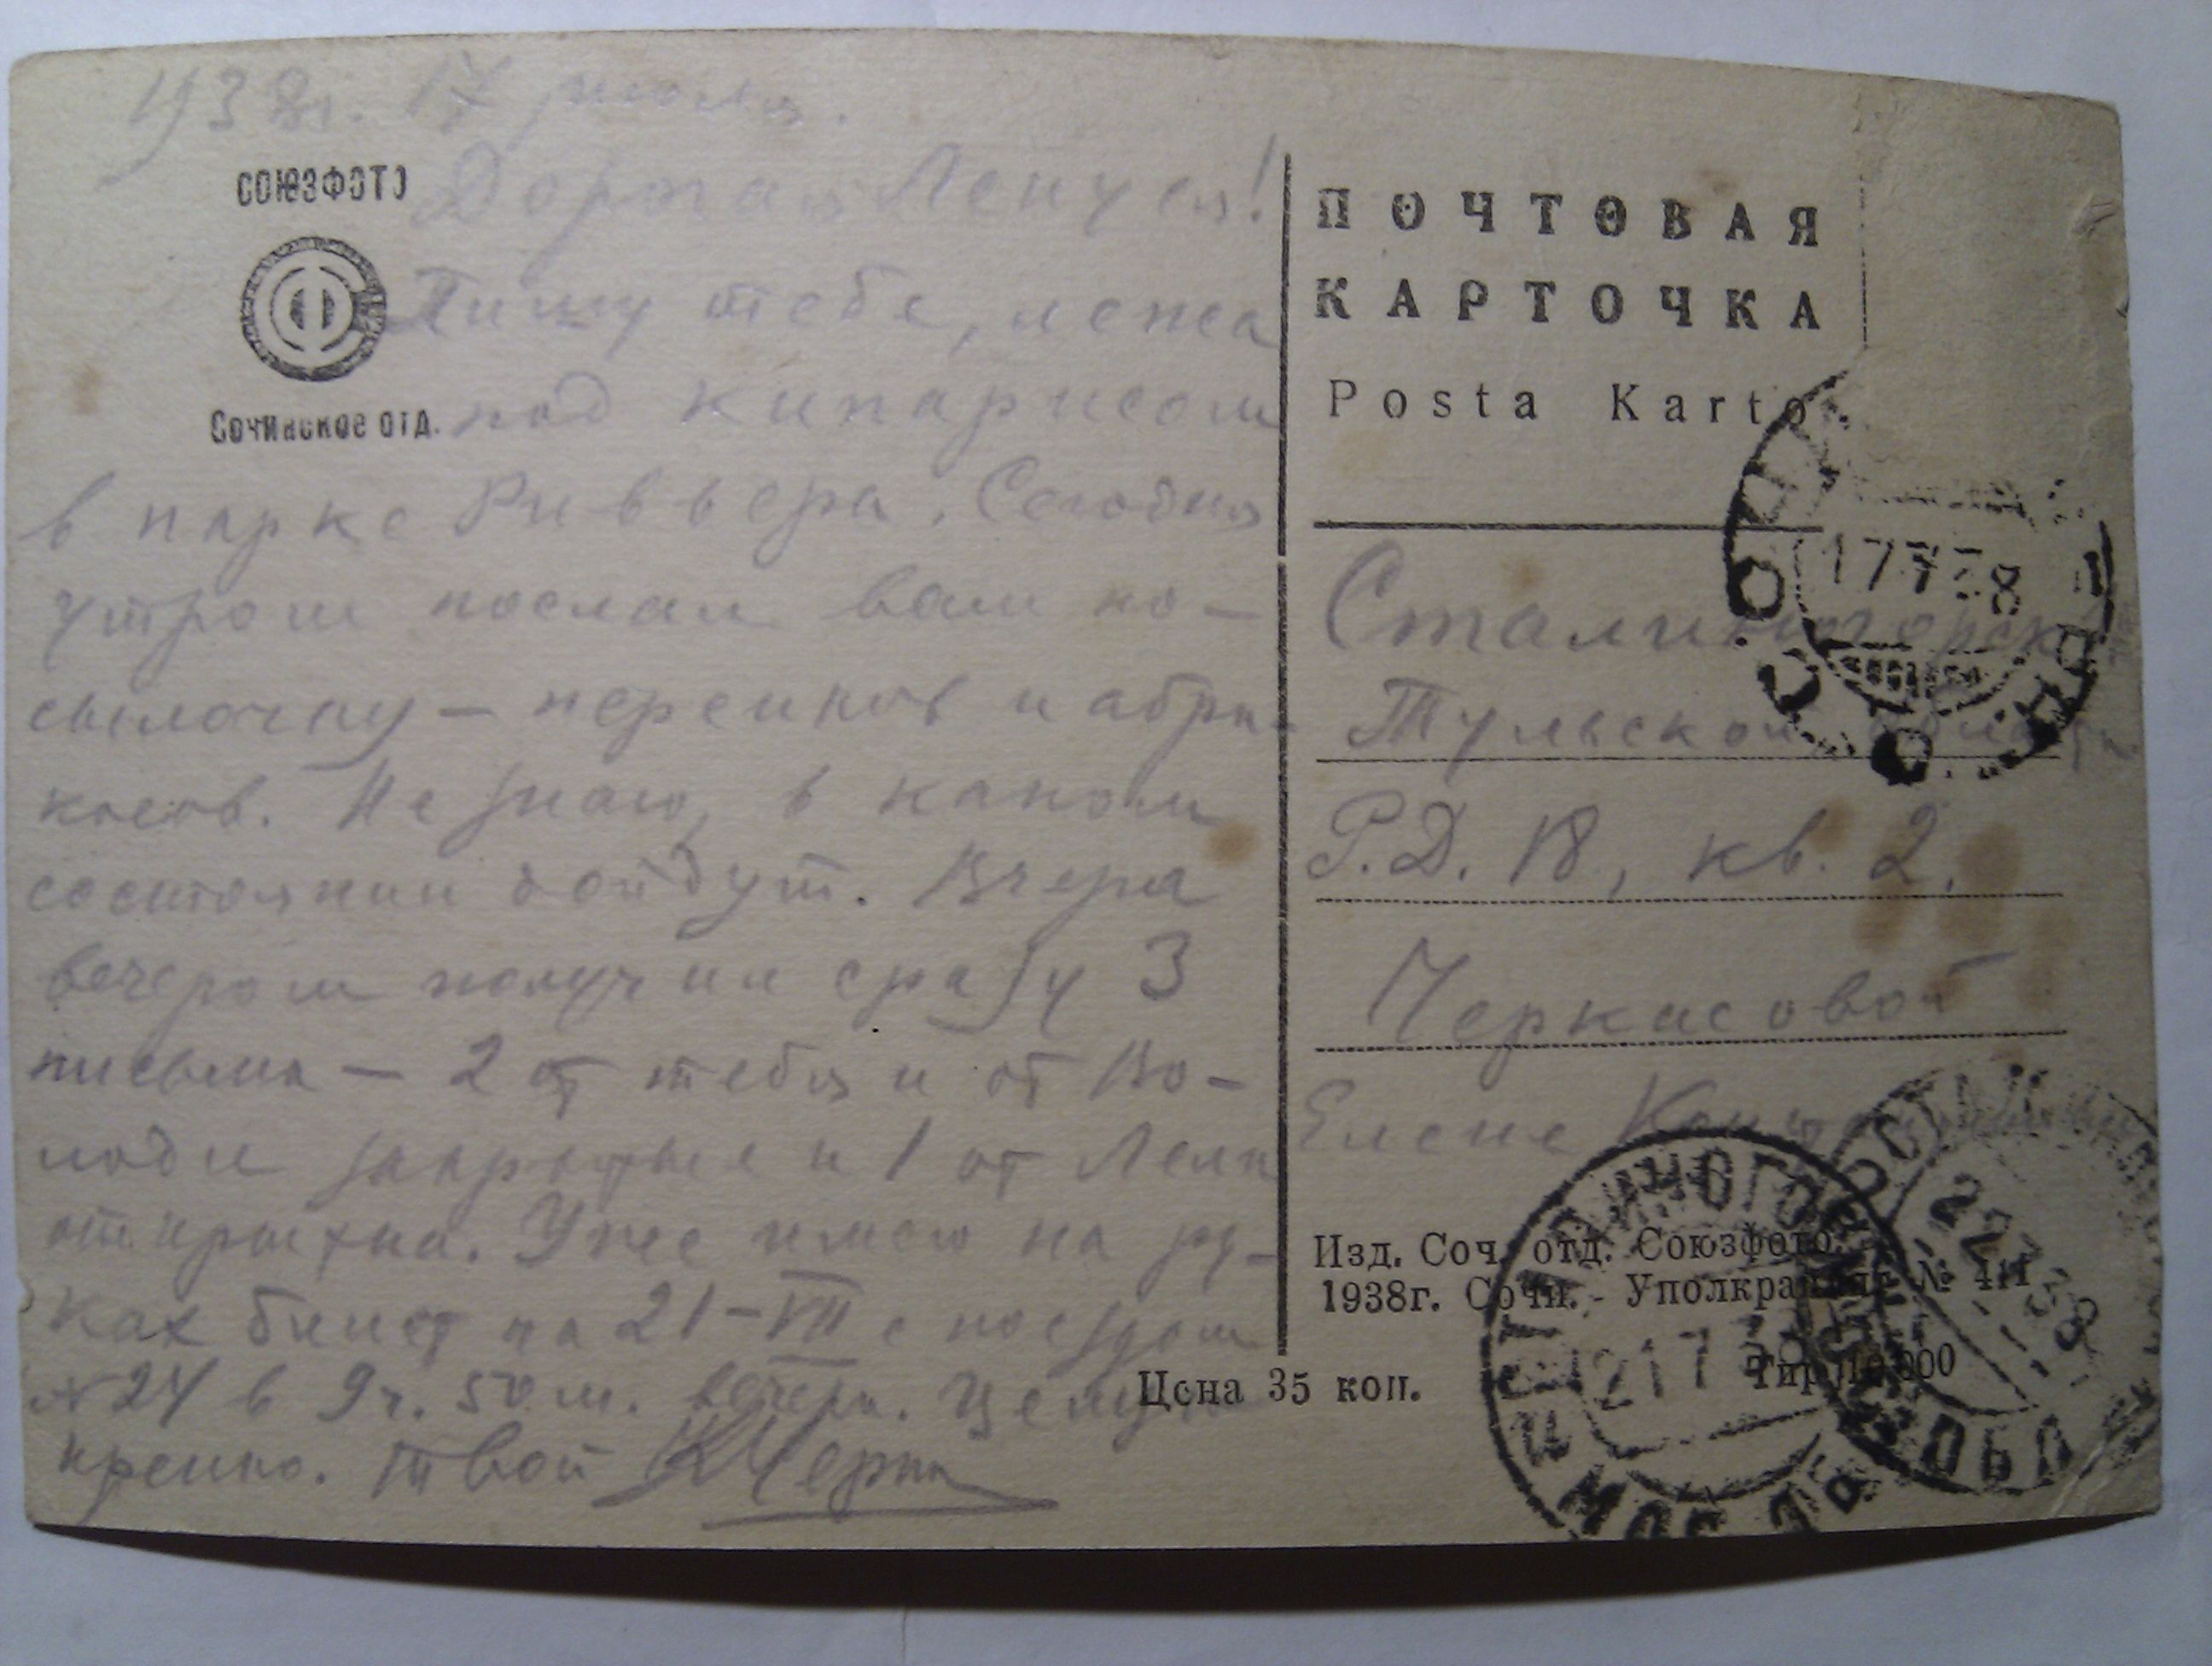 1938г. 17 июля.
СОЮЗФОТО
Дорогая Ленуся!
Пишу тебе, лежа
Сочинское отд.
под кипарисом
в парке Ривьера. Сегодня
утром послал вам по-
сылочку — персиков и абри-
косов. Не знаю, в каком
состоянии дойдут. Вчера
вечером получил сразу 3
письма — 2 от тебя и от Во-
лоди закрытые и 1 от Лели
открытка. Уже имею на ру-
ках билет на 21-VII с поездом
№ 24 в 9 ч. 50 м. вечера. Целую
крепко. Твой КЧерка
ПОЧТОВАЯ
КАРТОЧКА
Posta Karto
СОЧИ
17 7 38
Сталиногорск
Тульской
Р.Д. 18, кв. 2.
Черкасовой
Елене
Изд. Соч. отд. Союзфото.
1938г. Сочи. - Уполкрайлит № 411
Тир. 10.000
Цена 35 коп.
СТАЛИНОГОРСК
21 7 38
22 7 38